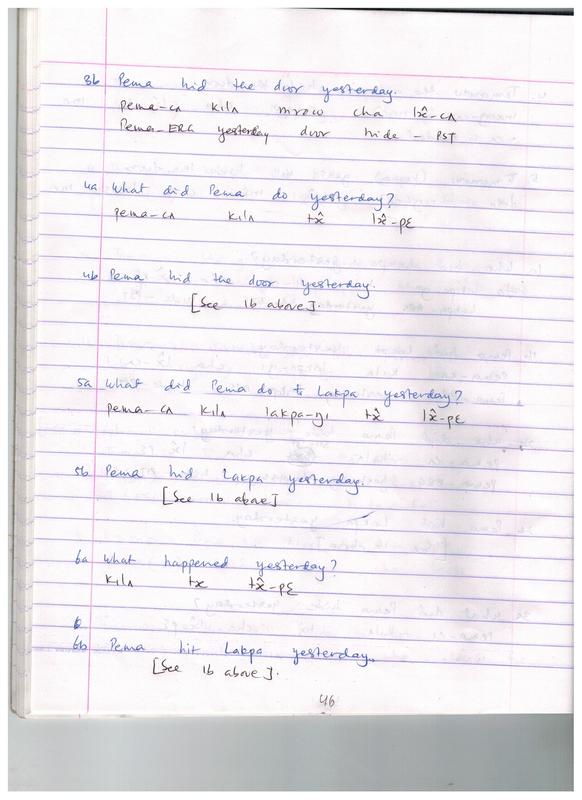 3b Pema hid the door yesterday.
pema-cʌ kilʌ mrəw cha lx̂-cʌ
Pema-ERG yesterday door hide - PST
4a What did Pema do yesterday?
pema-cʌ kilʌ tx̂ lx̂-pɛ
4b Pema hid the door yesterday.
[See 1b above].
5a What did Pema do to Lakpa yesterday?
pema-cʌ kilʌ lakpa-ŋi tx̂ lx̂-pɛ
5b Pema hid Lakpa yesterday.
[See 1b above]
6a What happened yesterday?
kilʌ tx tx̂-pɛ
6
6b Pema hit Lakpa yesterday.
[See 1b above].
46